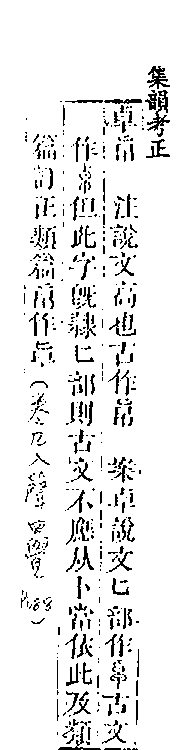 集韻考正
卓帠 注説文高也古作帠 案卓説文匕部作𠦝古文
作𠦝但此字旣隸匕部則古文不應从卜當依此及類
篇訂正類篇帠作𠦝(卷九入聲四覺 P.88)